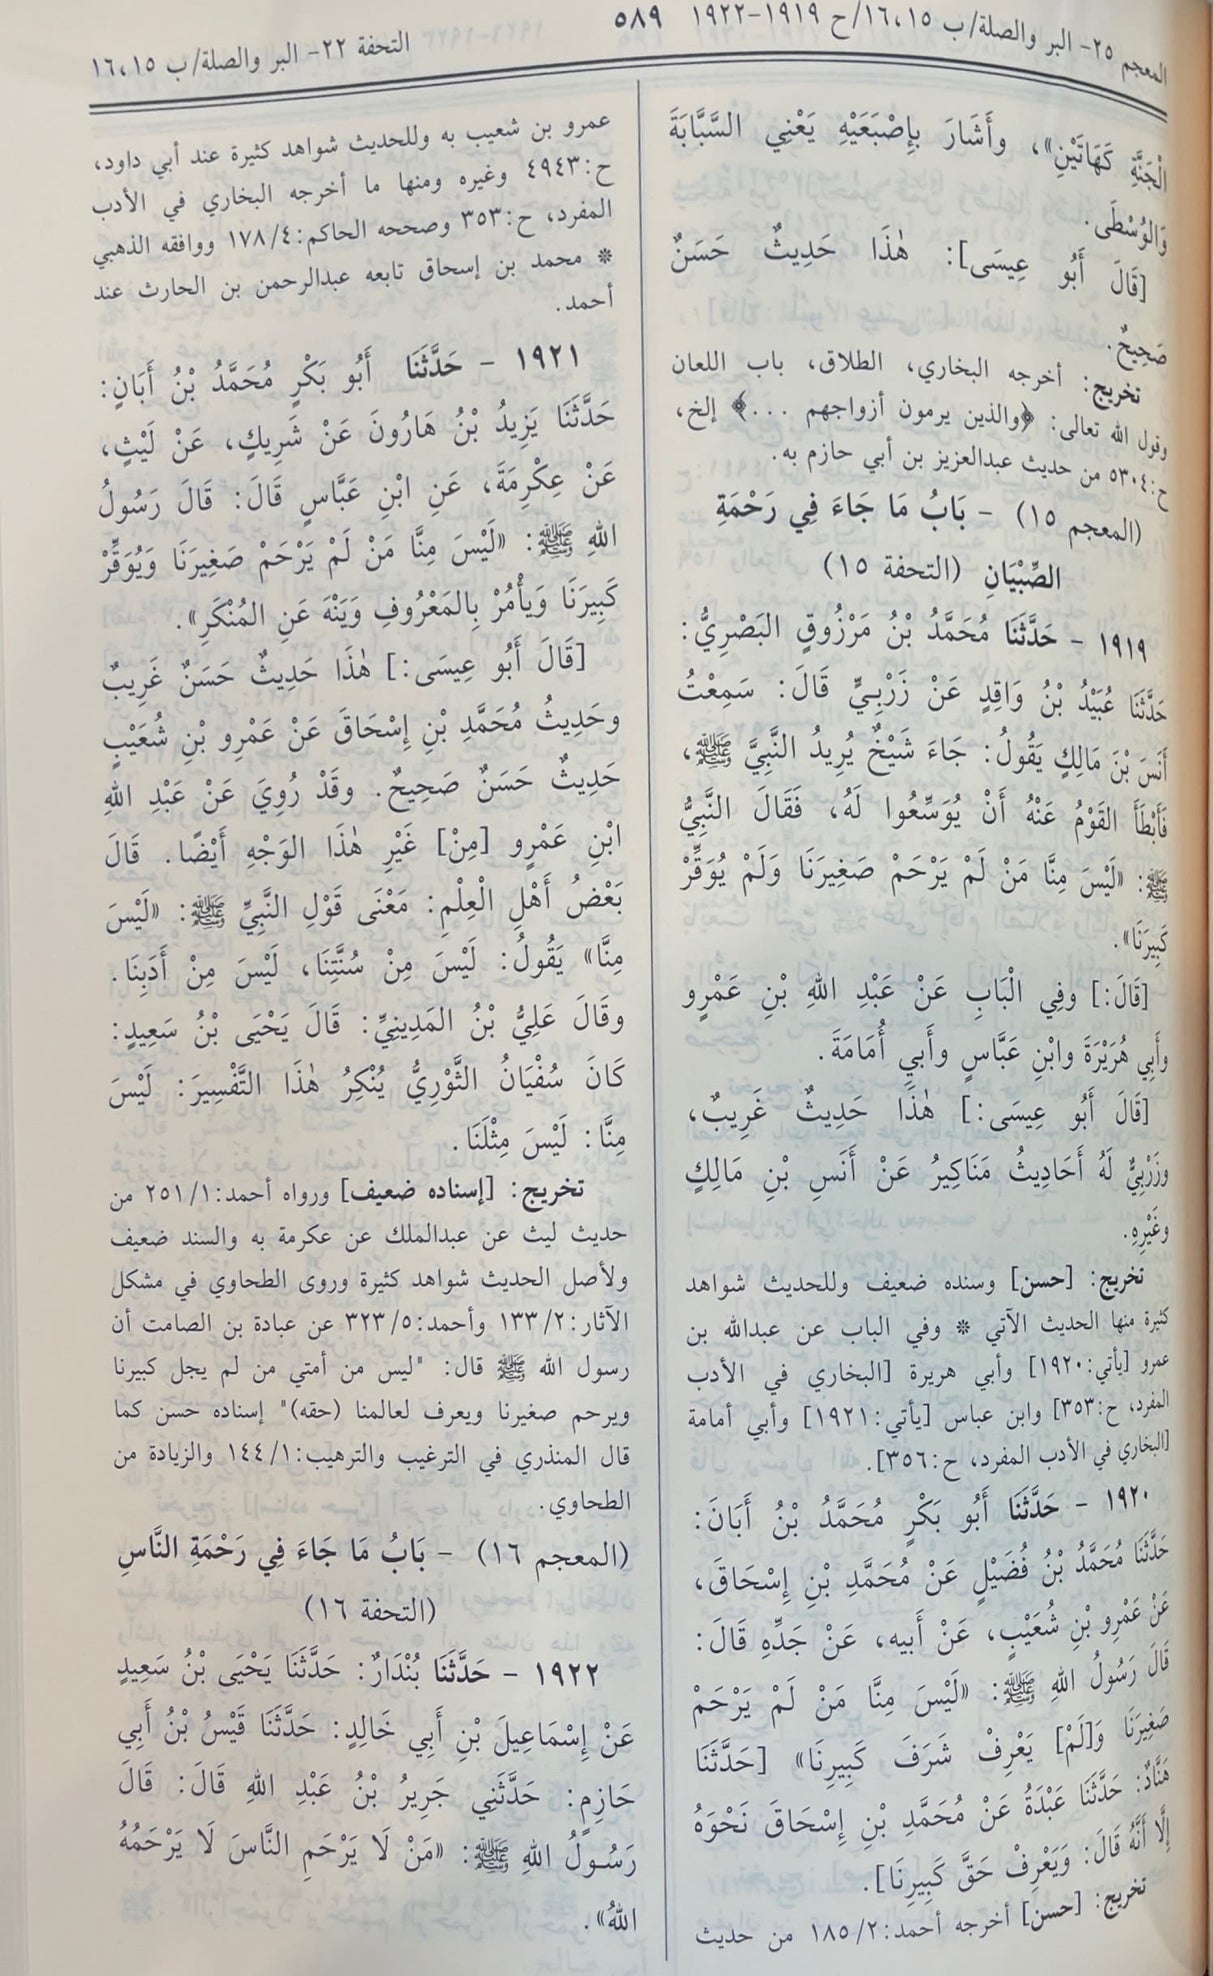 المعجم ٢٥- البر والصلة/ب ١٦،١٥/ح ١٩١٩-١٩٢٢
٥٨٩
التحفة ٢٢- البر والصلة/ب ١٦،١٥
الْجَنَّةِ كَهَاتَيْنِ»، وأَشَارَ بِإِصْبَعَيْهِ يَعْنِي السَّبَّابَةَ
وَالوُسْطَى.
[قَالَ أَبُو عِيسَى]: هٰذَا حَدِيثٌ حَسَنٌ
صَحِيحٌ.
تخريج: أخرجه البخاري، الطلاق، باب اللعان
وقول الله تعالى: ﴿والذين يرمون أزواجهم ...﴾ إلخ،
ح:٥٣٠٤ من حديث عبدالعزيز بن أبي حازم به.
(المعجم ١٥) - بَابُ مَا جَاءَ فِي رَحْمَةِ
الصِّبْيَانِ (التحفة ١٥)
١٩١٩ - حَدَّثَنَا مُحَمَّدُ بْنُ مَرْزُوقٍ البَصْرِيُّ:
حَدَّثَنَا عُبَيْدُ بْنُ وَاقِدٍ عَنْ زَرْبِيٍّ قَالَ: سَمِعْتُ
أَنَسَ بْنَ مَالِكٍ يَقُولُ: جَاءَ شَيْخٌ يُرِيدُ النَّبِيَّ ﷺ،
فَأَبْطَأَ القَوْمُ عَنْهُ أَنْ يُوَسِّعُوا لَهُ، فَقَالَ النَّبِيُّ
ﷺ: «لَيْسَ مِنَّا مَنْ لَمْ يَرْحَمْ صَغِيرَنَا وَلَمْ يُوَقِّرْ
كَبِيرَنَا».
[قَالَ:] وفِي الْبَابِ عَنْ عَبْدِ اللهِ بْنِ عَمْرٍو
وأَبِي هُرَيْرَةَ وابْنِ عَبَّاسٍ وأَبِي أُمَامَةَ.
[قَالَ أَبُو عِيسَى:] هٰذَا حَدِيثٌ غَرِيبٌ،
وزَرْبِيٌّ لَهُ أَحَادِيثُ مَنَاكِيرُ عَنْ أَنَسِ بْنِ مَالِكٍ
وغَيْرِهِ.
تخريج: [حسن] وسنده ضعيف وللحديث شواهد
كثيرة منها الحديث الآتي * وفي الباب عن عبدالله بن
عمرو [يأتي:١٩٢٠] وأبي هريرة [البخاري في الأدب
المفرد، ح:٣٥٣] وابن عباس [يأتي:١٩٢١] وأبي أمامة
[البخاري في الأدب المفرد، ح:٣٥٦].
١٩٢٠ - حَدَّثَنَا أَبُو بَكْرٍ مُحَمَّدُ بْنُ أَبَانَ:
حَدَّثَنَا مُحَمَّدُ بْنُ فُضَيْلٍ عَنْ مُحَمَّدِ بْنِ إِسْحَاقَ،
عَنْ عَمْرِو بْنِ شُعَيْبٍ، عَنْ أَبيه، عَنْ جَدِّهِ قَالَ:
قَالَ رَسُولُ اللهِ ﷺ: «لَيْسَ مِنَّا مَنْ لَمْ يَرْحَمْ
صَغِيرَنَا وَ[لَمْ] يَعْرِفْ شَرَفَ كَبِيرِنَا» [حَدَّثَنَا
هَنَّادٌ: حَدَّثَنَا عَبْدَةُ عَنْ مُحَمَّدِ بْنِ إِسْحَاقَ نَحْوَهُ
إِلَّا أَنَّهُ قَالَ: وَيَعْرِفْ حَقَّ كَبِيرِنَا].
تخريج: [حسن] أخرجه أحمد:٢/١٨٥ من حديث
عمرو بن شعيب به وللحديث شواهد كثيرة عند أبي داود،
ح:٤٩٤٣ وغيره ومنها ما أخرجه البخاري في الأدب
المفرد، ح:٣٥٣ وصححه الحاكم:٤/١٧٨ ووافقه الذهبي
* محمد بن إسحاق تابعه عبدالرحمن بن الحارث عند
أحمد.
١٩٢١ - حَدَّثَنَا أَبُو بَكْرٍ مُحَمَّدُ بْنُ أَبَانٍ:
حَدَّثَنَا يَزِيدُ بْنُ هَارُونَ عَنْ شَرِيكٍ، عَنْ لَيْثٍ،
عَنْ عِكْرِمَةَ، عَنِ ابْنِ عَبَّاسٍ قَالَ: قَالَ رَسُولُ
اللهِ ﷺ: «لَيْسَ مِنَّا مَنْ لَمْ يَرْحَمْ صَغِيرَنَا وَيُوَقِّرْ
كَبِيرَنَا وَيأْمُرْ بِالمَعْرُوفِ وَيَنْهَ عَنِ المُنْكَرِ».
[قَالَ أَبُو عِيسَى:] هٰذَا حَدِيثٌ حَسَنٌ غَرِيبٌ
وحَدِيثُ مُحَمَّدِ بْنِ إِسْحَاقَ عَنْ عَمْرِو بْنِ شُعَيْبٍ
حَدِيثٌ حَسَنٌ صَحِيحٌ. وقَدْ رُوِيَ عَنْ عَبْدِ اللهِ
ابْنِ عَمْرٍو [مِنْ] غَيْرِ هٰذَا الوَجْهِ أَيْضًا. قَالَ
بَعْضُ أَهْلِ الْعِلْمِ: مَعْنَى قَوْلِ النَّبِيِّ ﷺ: «لَيْسَ
مِنَّا» يَقُولُ: لَيْسَ مِنْ سُنَّتِنَا، لَيْسَ مِنْ أَدَبِنَا.
وقَالَ عَلِيُّ بْنُ المَدِينِيِّ: قَالَ يَحْيَى بْنُ سَعِيدٍ:
كَانَ سُفْيَانُ الثَّوْرِيُّ يُنْكِرُ هٰذَا التَّفْسِيرَ: لَيْسَ
مِنَّا: لَيْسَ مِثْلَنَا.
تخريج: [إسناده ضعيف] ورواه أحمد:١/٢٥١ من
حديث ليث عن عبدالملك عن عكرمة به والسند ضعيف
ولأصل الحديث شواهد كثيرة وروى الطحاوي في مشكل
الآثار:٢/١٣٣ وأحمد:٥/٣٢٣ عن عبادة بن الصامت أن
رسول الله ﷺ قال: "ليس من أمتي من لم يجل كبيرنا
ويرحم صغيرنا ويعرف لعالمنا (حقه)" إسناده حسن كما
قال المنذري في الترغيب والترهيب:١/١٤٤ والزيادة من
الطحاوي.
(المعجم ١٦) - بَابُ مَا جَاءَ فِي رَحْمَةِ النَّاسِ
(التحفة ١٦)
١٩٢٢ - حَدَّثَنَا بُنْدَارٌ: حَدَّثَنَا يَحْيَى بْنُ سَعِيدٍ
عَنْ إِسْمَاعِيلَ بْنِ أَبِي خَالِدٍ: حَدَّثَنَا قَيْسُ بْنُ أَبِي
حَازِمٍ: حَدَّثَنِي جَرِيرُ بْنُ عَبْدِ اللهِ قَالَ: قَالَ
رَسُولُ اللهِ ﷺ: «مَنْ لَا يَرْحَمِ النَّاسَ لَا يَرْحَمُهُ
اللهُ».